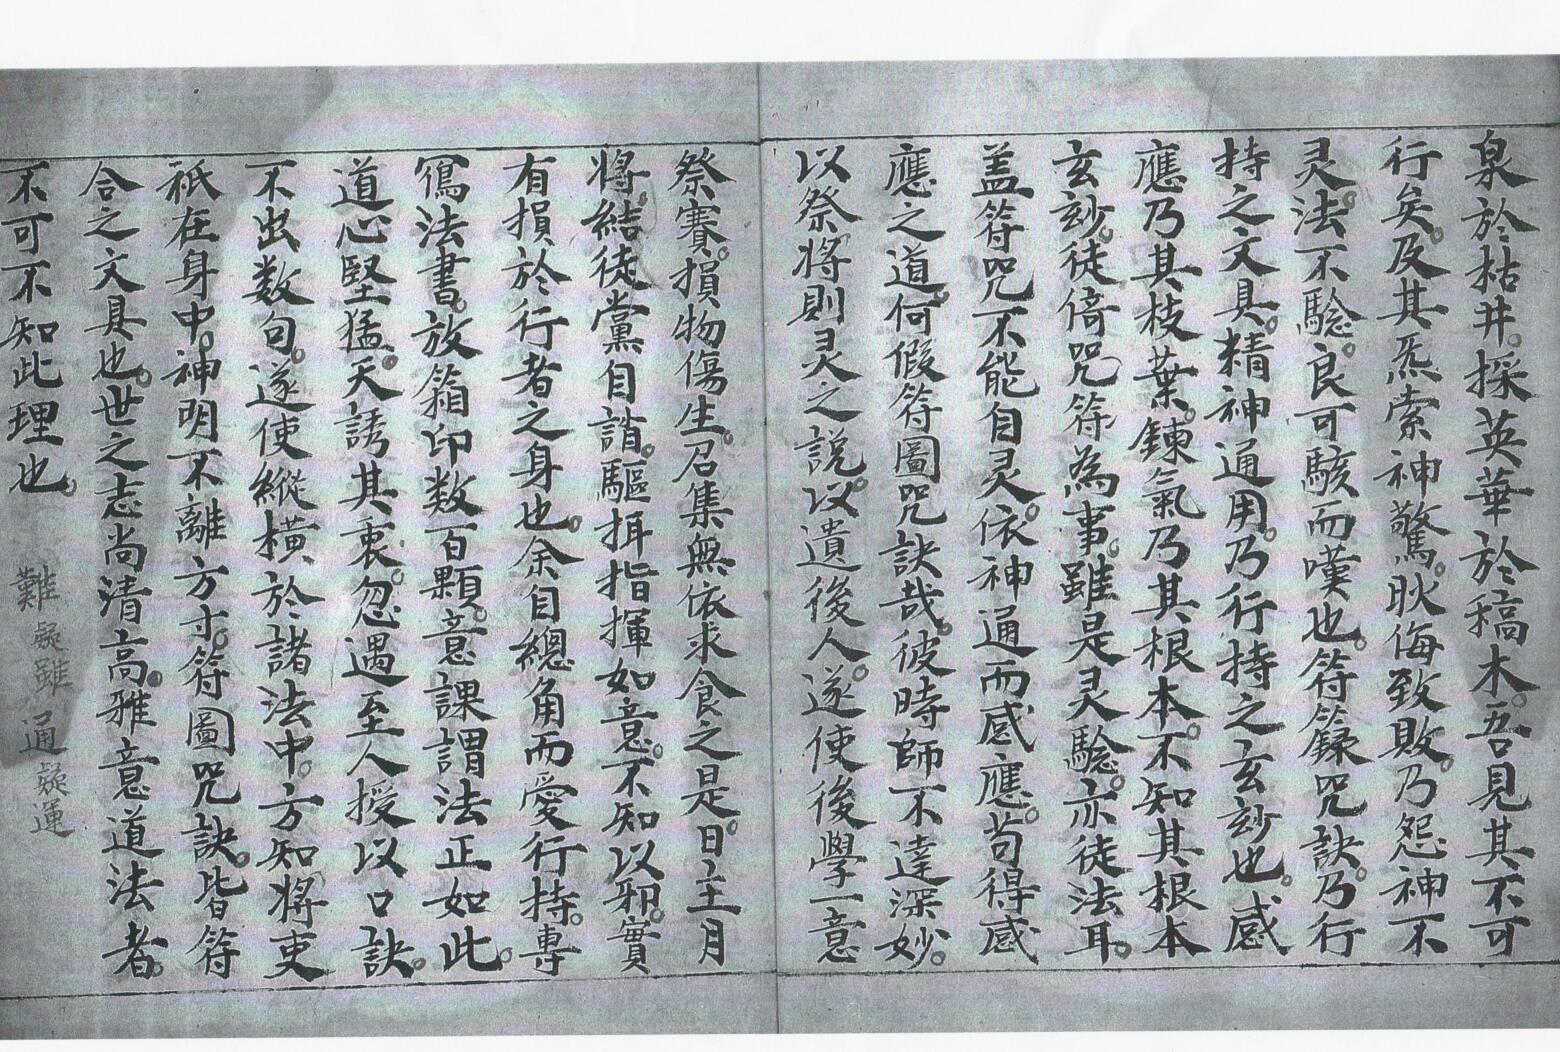 泉於枯井。採英華於稿木。吾見其不可
行矣。及其炁索神驚。耿悔致敗。乃怨神不
灵。法不驗。良可駭而嘆也。符籙咒訣。乃行
持之文具。精神通用。乃行持之玄玅也。感
應乃其枝葉。鍊氣乃其根本。不知其根本
玄玅。徒倚咒符為事。雖是灵驗。亦徒法耳。
盖符咒不能自灵。依神通而感應。苟得感
應之道。何假符圖咒訣哉。彼時師不達深妙。
以祭將則灵之說。以遺後人。遂使後學一意
祭賽。損物傷生。召集無依求食之是。日主月
將。結徒黨自詣。驅揖指揮如意。不知以邪。實
有損於行者之身也。余自總角而愛行持。專
寫法書。放箱印数百顆。意課謂法正如此。
道心堅猛。天誘其衷。忽遇至人授以口訣。
不出数句。遂使縱橫於諸法中。方知將吏
祇在身中。神明不離方寸。符圖咒訣。皆符
合之文具也。世之志尚清高。雅意道法者。
不可不知此理也。 難 雖通 運